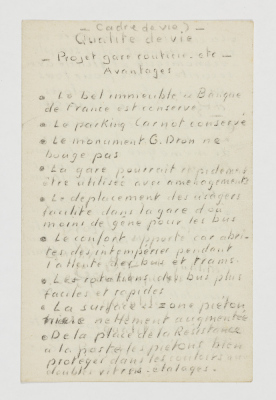 - Cadre de vie)
Qualité de vie
- Projet gare routière. etc -
Avantages
• Le bel immeuble "Banque
de France est conservé
• Le parking Carnot conservé
• Le monument G. Dron ne
bouge pas
• La gare pourrait rapidement
être utilisée avec aménagements
• Le déplacement des usagers
facilité dans la gare d'où
moins de gêne pour les bus
• Le confort apporté car abri-
tés des intempéries pendant
l'attente des bus et trams.
• Les rotations des bus plus
faciles et rapides
• La surface zone piéton
nière nettement augmentée
• De la place de la Résistance
à la poste les piétons bien
protégés dans les couloirs
doubles vitres. étalages.